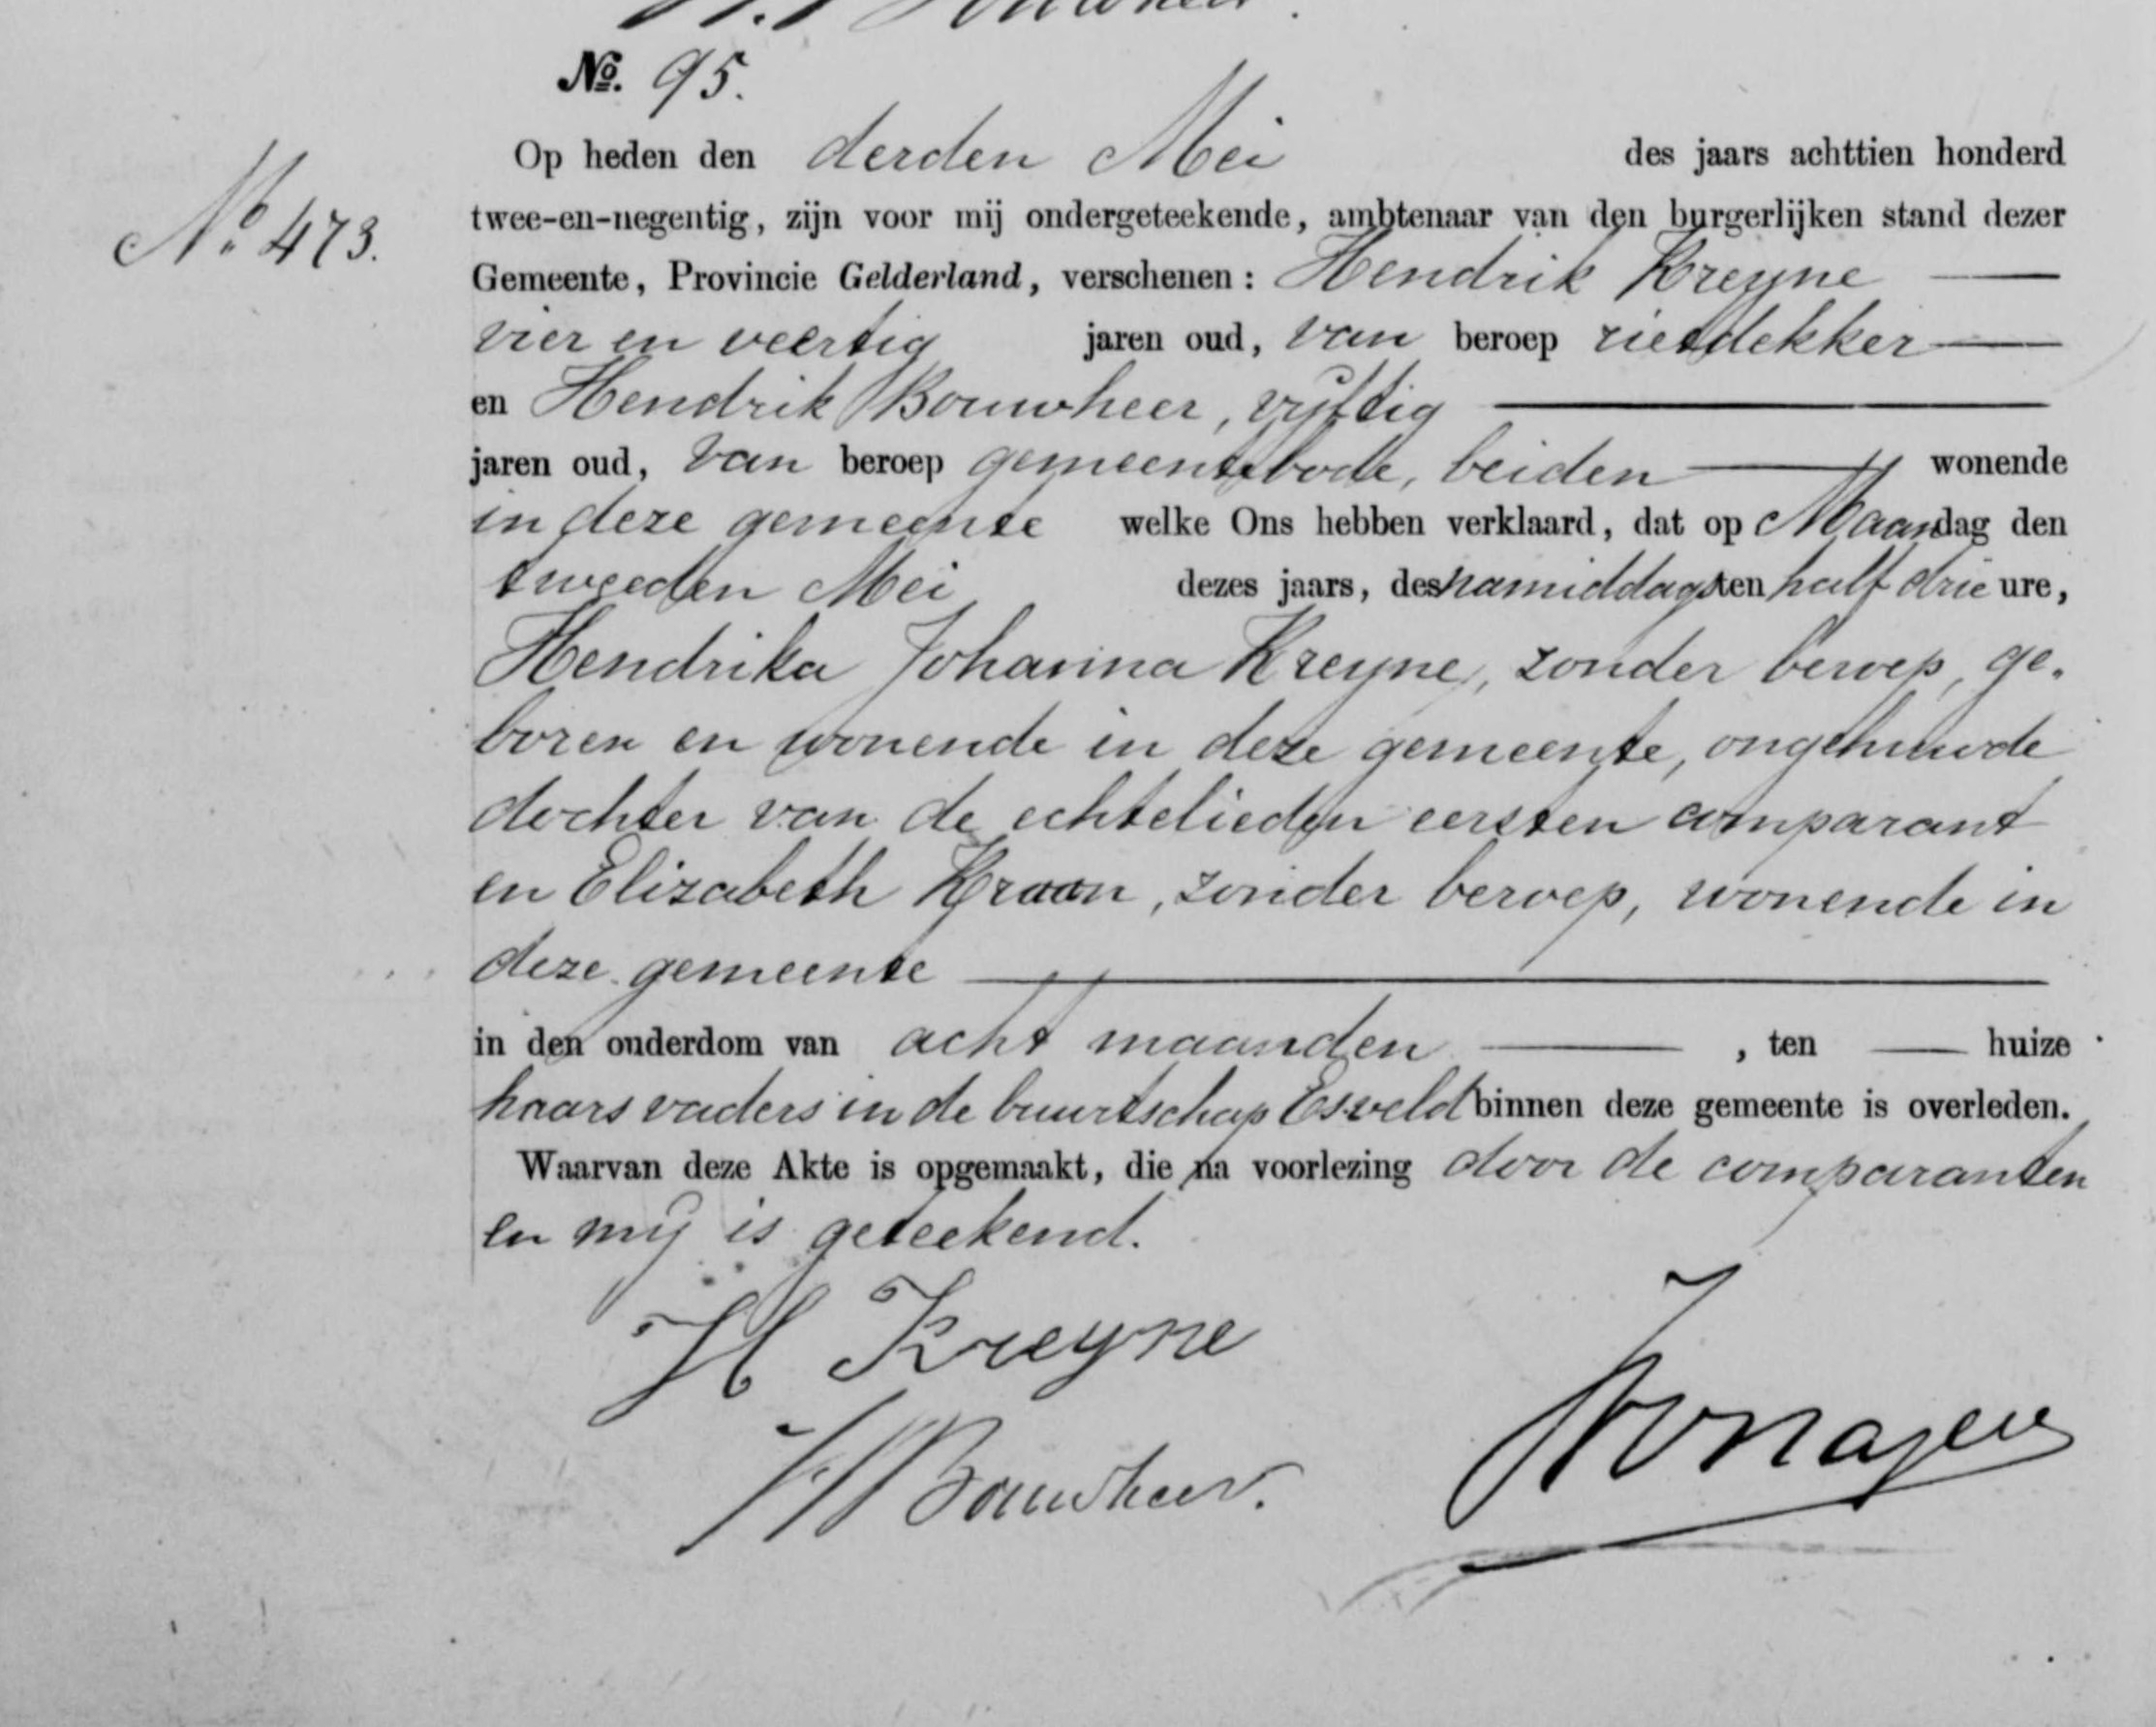 No. 95.
No. 473.
Op heden den derden Mei des jaars achttien honderd
twee-en-negentig, zijn voor mij ondergeteekende, ambtenaar van den burgerlijken stand dezer
Gemeente, Provincie Gelderland, verschenen: Hendrik Kreyne
vier en veertig jaren oud, van beroep rietdekker
en Hendrik Bouwheer, vijftig
jaren oud, van beroep gemeentebode, beiden wonende
in deze gemeente welke Ons hebben verklaard, dat op Maandag den
tweeden Mei dezes jaars, des namiddags ten half drie ure,
Hendrika Johanna Kreyne, zonder beroep, ge-
boren en wonende in deze gemeente, ongehuwde
dochter van de echtelieden eersten comparant
en Elizabeth Kraan, zonder beroep, wonende in
deze gemeente
in den ouderdom van acht maanden, ten huize
haars vaders in de buurtschap Esveld binnen deze gemeente is overleden.
Waarvan deze Akte is opgemaakt, die na voorlezing door de comparanten
en mij is geteekend.
H Kreyne
H Bouwheer.